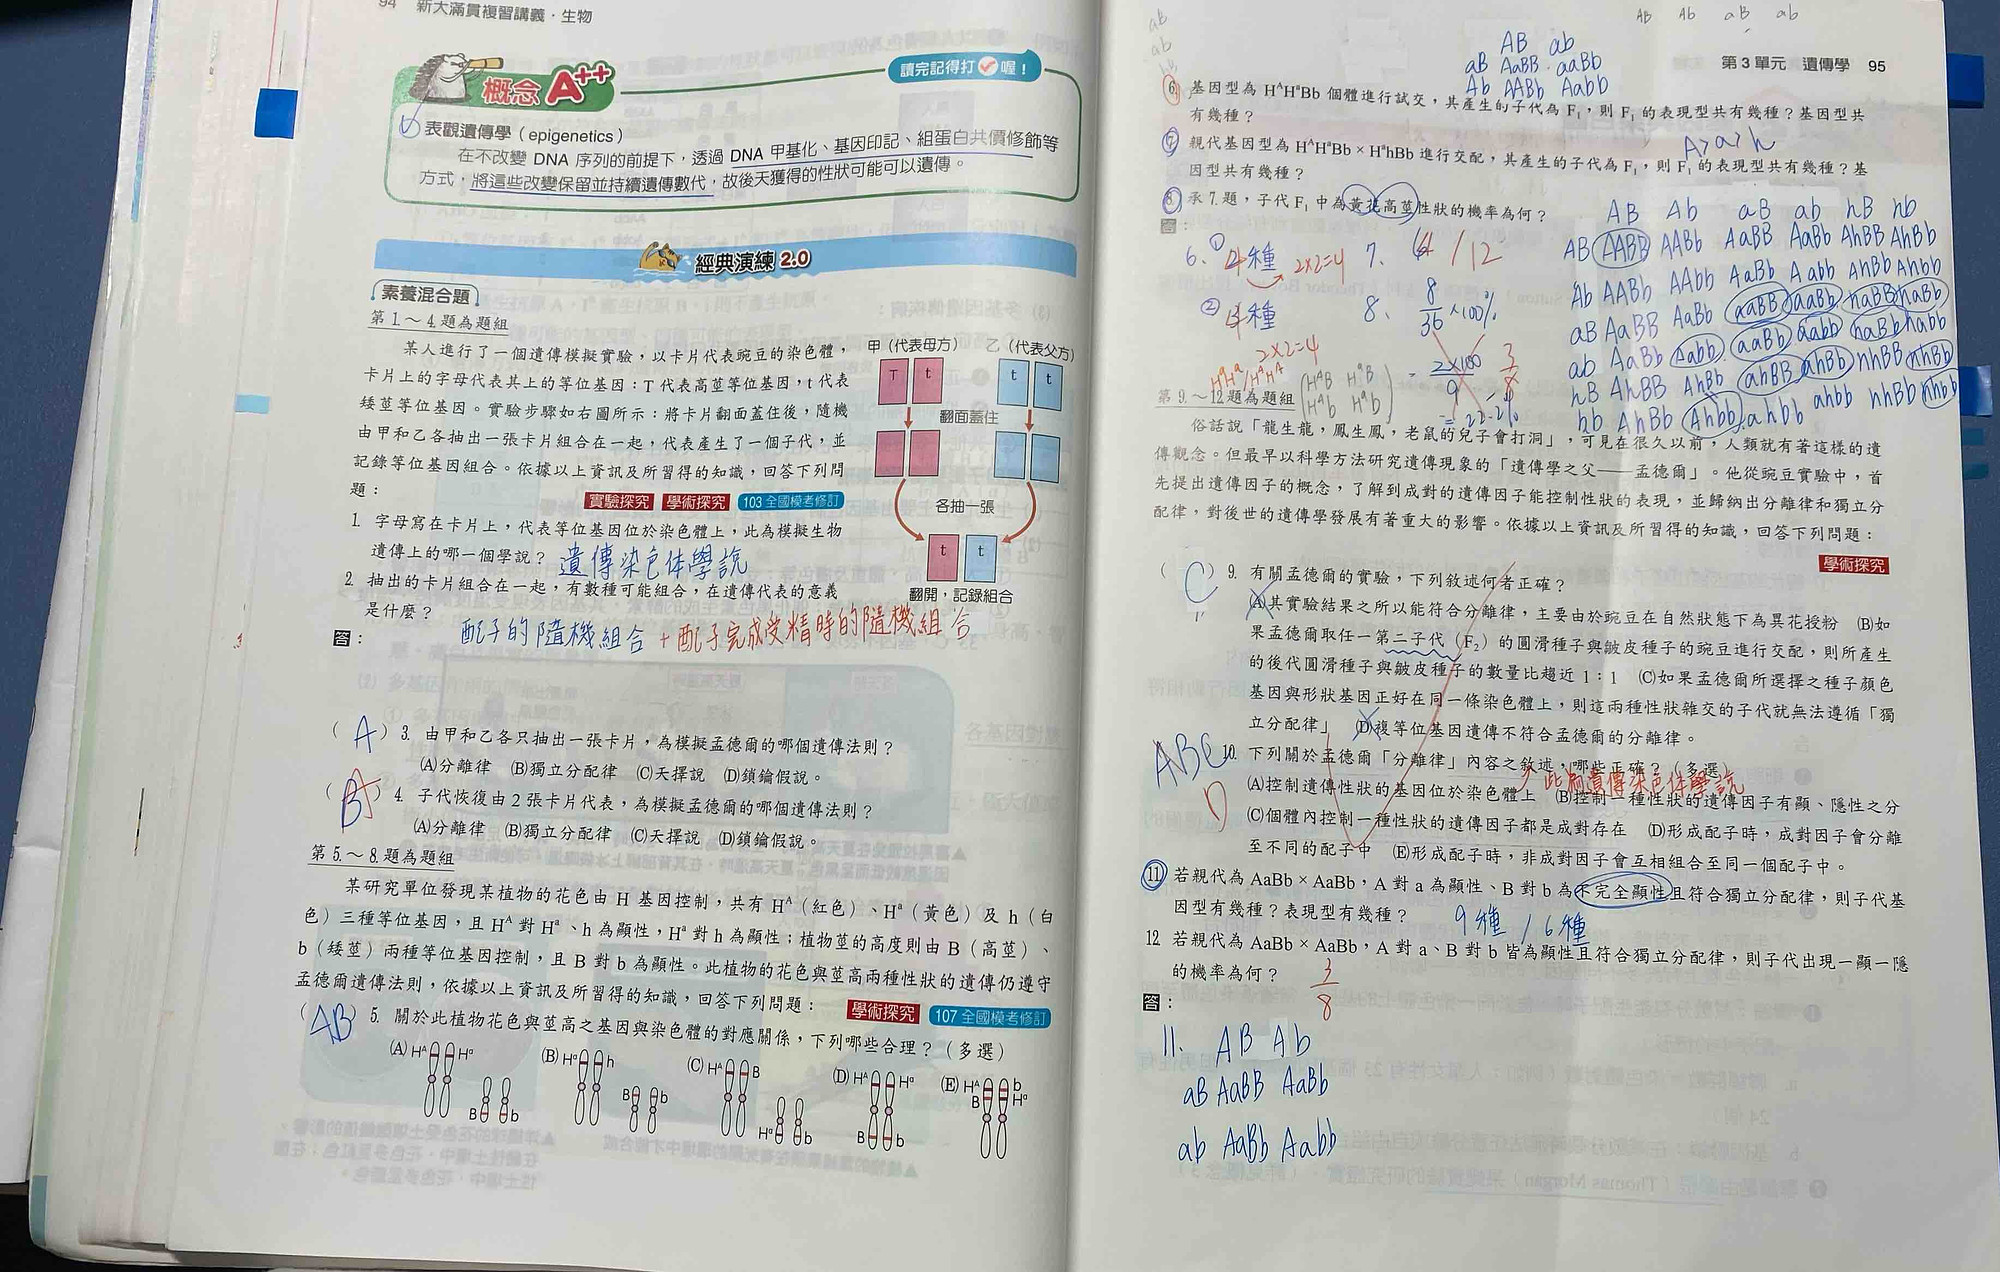 94 新大滿貫複習講義．生物
概念 A++
讀完記得打 喔！
表觀遺傳學（epigenetics）
在不改變 DNA 序列的前提下，透過 DNA 甲基化、基因印記、組蛋白共價修飾等
方式，將這些改變保留並持續遺傳數代，故後天獲得的性狀可能可以遺傳。
經典演練 2.0
素養混合題
第 1.～4. 題為題組
某人進行了一個遺傳模擬實驗，以卡片代表豌豆的染色體，
卡片上的字母代表其上的等位基因：T 代表高莖等位基因，t 代表
矮莖等位基因。實驗步驟如右圖所示：將卡片翻面蓋住後，隨機
由甲和乙各抽出一張卡片組合在一起，代表產生了一個子代，並
記錄等位基因組合。依據以上資訊及所習得的知識，回答下列問
題：
實驗探究 學術探究 103 全國模考修訂
甲（代表母方） 乙（代表父方）
T t t t
翻面蓋住
各抽一張
t t
翻開，記錄組合
1. 字母寫在卡片上，代表等位基因位於染色體上，此為模擬生物
遺傳上的哪一個學說？ 遺傳染色体學說
2. 抽出的卡片組合在一起，有數種可能組合，在遺傳代表的意義
是什麼？
答： 配子的隨機組合 + 配子完成受精時的隨機組合
（ A ）3. 由甲和乙各只抽出一張卡片，為模擬孟德爾的哪個遺傳法則？
(A)分離律 (B)獨立分配律 (C)天擇說 (D)鎖鑰假說。
（ B A ）4. 子代恢復由 2 張卡片代表，為模擬孟德爾的哪個遺傳法則？
(A)分離律 (B)獨立分配律 (C)天擇說 (D)鎖鑰假說。
第 5.～8. 題為題組
某研究單位發現某植物的花色由 H 基因控制，共有 Hᴬ（紅色）、Hᵃ（黃色）及 h（白
色）三種等位基因，且 Hᴬ 對 Hᵃ、h 為顯性，Hᵃ 對 h 為顯性；植物莖的高度則由 B（高莖）、
b（矮莖）兩種等位基因控制，且 B 對 b 為顯性。此植物的花色與莖高兩種性狀的遺傳仍遵守
孟德爾遺傳法則，依據以上資訊及所習得的知識，回答下列問題：
學術探究 107 全國模考修訂
（ AB ）5. 關於此植物花色與莖高之基因與染色體的對應關係，下列哪些合理？（多選）
(A) Hᴬ Hᵃ B b
(B) Hᵃ h B b
(C) Hᴬ B Hᵃ b
(D) Hᴬ Hᵃ B b
(E) Hᴬ b B Hᵃ
AB Ab aB ab
第 3 單元 遺傳學 95
ab
ab
AB ab
aB AaBB aaBb
Ab AABb Aabb
6. 基因型為 HᴬHᵃBb 個體進行試交，其產生的子代為 F₁，則 F₁ 的表現型共有幾種？基因型共
有幾種？
A>a>h
7. 親代基因型為 HᴬHᵃBb × HᵃhBb 進行交配，其產生的子代為 F₁，則 F₁ 的表現型共有幾種？基
因型共有幾種？
8. 承 7. 題，子代 F₁ 中為黃花高莖性狀的機率為何？
答：
6. ① 4種 2×2=4
② 4種
2×2=4
7. 4 /12
8. 8/36 ×100%
= 2×100/9
3/8
HᴬB HᵃB
Hᴬb Hᵃb
AB Ab aB ab hB hb
AB AABB AABb AaBB AaBb AhBB AhBb
Ab AABb AAbb AaBb Aabb AhBb Ahbb
aB AaBB AaBb aaBB aaBb haBB haBb
ab AaBb Aabb aaBb aabb haBb habb
hB AhBB AhBb ahBB ahBb hhBB hhBb
hb AhBb Ahbb ahbb ahbb hhBb hhbb
第 9.～12. 題為題組
俗話說「龍生龍，鳳生鳳，老鼠的兒子會打洞」，可見在很久以前，人類就有著這樣的遺
傳觀念。但最早以科學方法研究遺傳現象的「遺傳學之父──孟德爾」。他從豌豆實驗中，首
先提出遺傳因子的概念，了解到成對的遺傳因子能控制性狀的表現，並歸納出分離律和獨立分
配律，對後世的遺傳學發展有著重大的影響。依據以上資訊及所習得的知識，回答下列問題：
學術探究
（ C ）9. 有關孟德爾的實驗，下列敘述何者正確？
(A)其實驗結果之所以能符合分離律，主要由於豌豆在自然狀態下為異花授粉 (B)如
果孟德爾取任一第二子代（F₂）的圓滑種子與皺皮種子的豌豆進行交配，則所產生
的後代圓滑種子與皺皮種子的數量比趨近 1：1 (C)如果孟德爾所選擇之種子顏色
基因與形狀基因正好在同一條染色體上，則這兩種性狀雜交的子代就無法遵循「獨
立分配律」 (D)複等位基因遺傳不符合孟德爾的分離律。
ABC D 10. 下列關於孟德爾「分離律」內容之敘述，哪些正確？（多選）
此為遺傳染色体學說
(A)控制遺傳性狀的基因位於染色體上 (B)控制一種性狀的遺傳因子有顯、隱性之分
(C)個體內控制一種性狀的遺傳因子都是成對存在 (D)形成配子時，成對因子會分離
至不同的配子中 (E)形成配子時，非成對因子會互相組合至同一個配子中。
11. 若親代為 AaBb × AaBb，A 對 a 為顯性、B 對 b 為不完全顯性且符合獨立分配律，則子代基
因型有幾種？表現型有幾種？ 9種 / 6種
12. 若親代為 AaBb × AaBb，A 對 a、B 對 b 皆為顯性且符合獨立分配律，則子代出現一顯一隱
的機率為何？ 3/8
答：
11. AB Ab
aB AaBB AaBb
ab AaBb Aabb